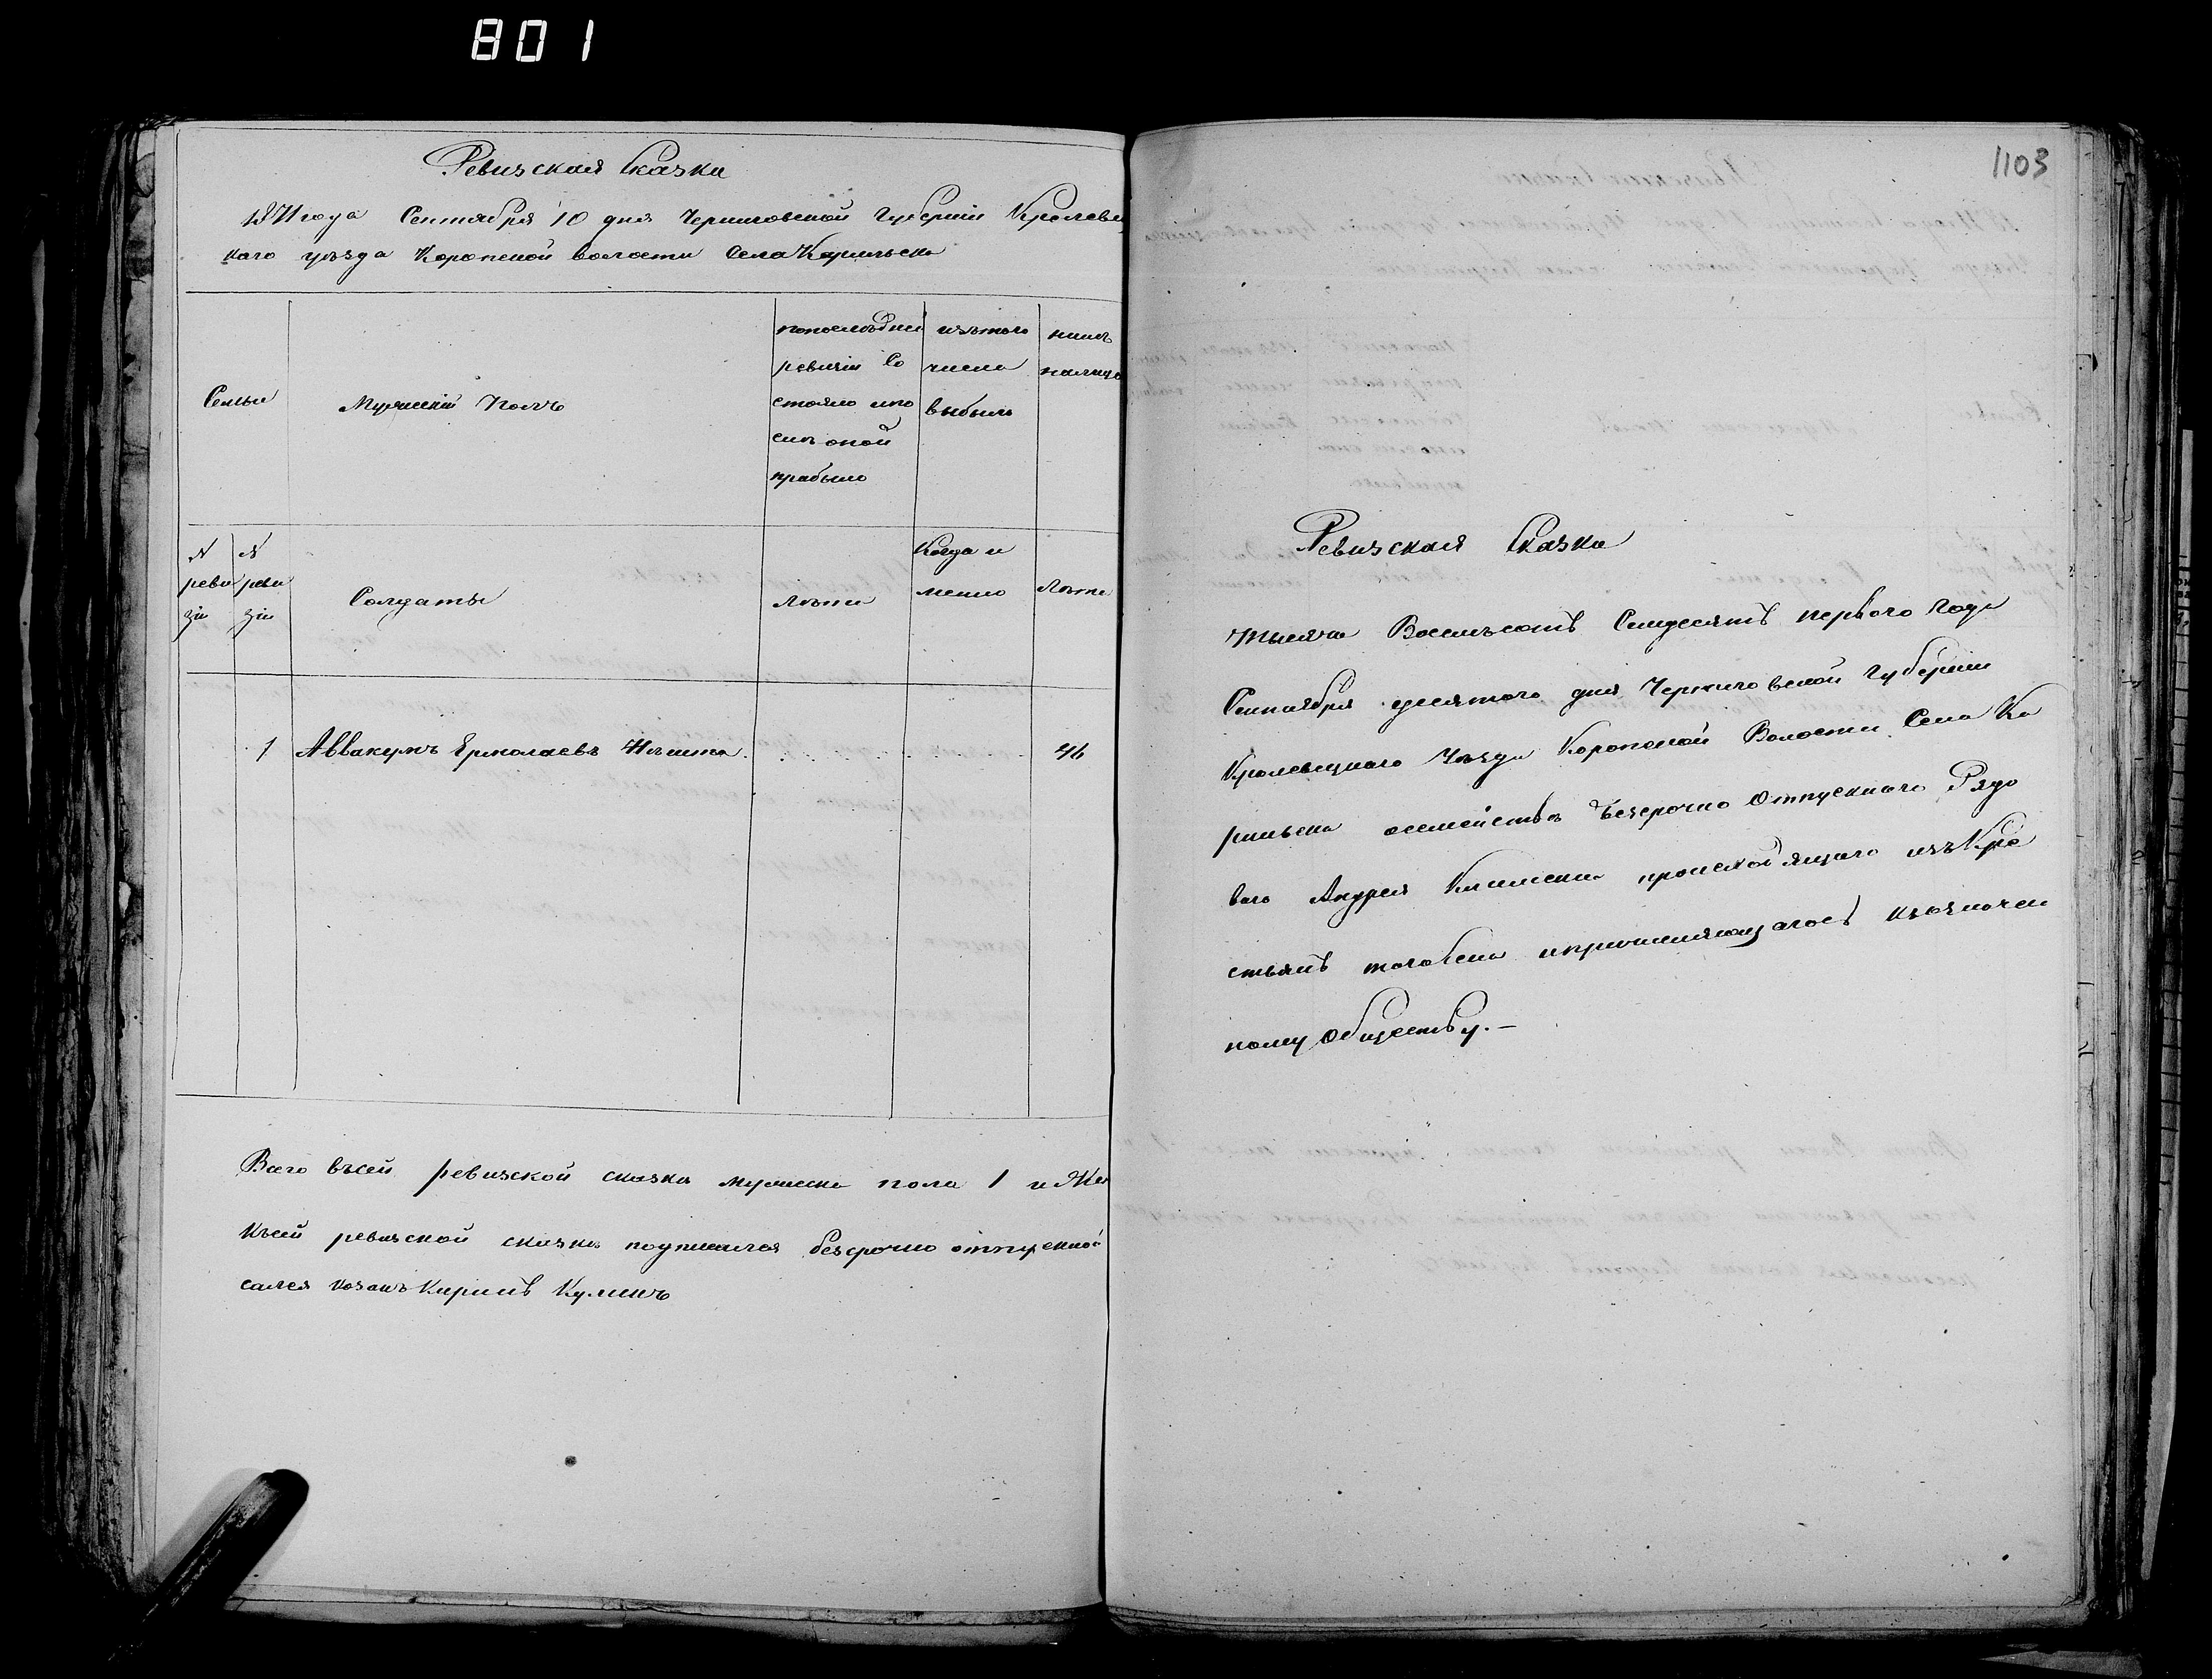 801
Ревизская Сказка
1871 года Сентября 10 дня Черниговской Губернии Кролеве
каго уѣзда Коропской волости Села Карильска
Семьи
Мужескій Полъ
попоследней
ревизіи Со
стояло ипо
слѣ оной
прабыло
изътого
числа
выбыло
нынѣ
налицо
N
реви
зіи
N
реви
зіи
Солдаты
Лѣта
Когда и
менно
Лѣта
1 Аввакумъ Ермолаевъ 46
Всего въсей ревизской сказки мужеска пола 1 и Же
Късей ревизской сказки подписался безсрочно отпускной
сался козакъ Кирилъ
1103
Ревизская Сказка
Тысяча Восемьсотъ Семдесятъ первого Года
Сентября десятого дня Черниговской Губерніи
Кролевецкого Уѣзда Коропской Волости Села Ка
рильска осемействѣ Безсрочно Отпускного Рядо
ваго Андрея происходящаго изъ Кре
стьянъ того села ипричисляющагось къ
ному Обществу.—